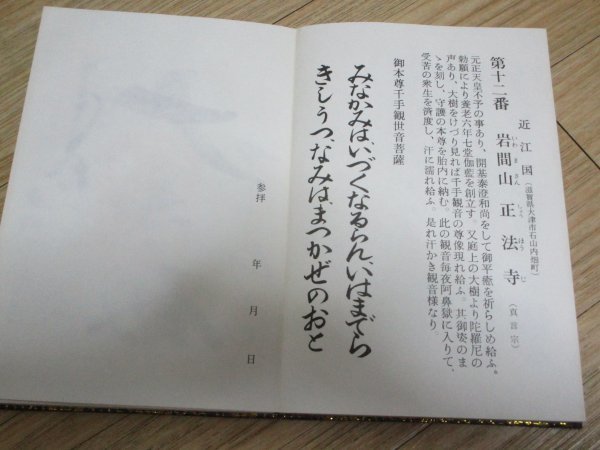 近江国(滋賀県大津市石山内畑町)
第十二番 岩間山 正法寺 (真言宗)
いわ ま さん しょう ほう じ
元正天皇不予の事あり、開基泰澄和尚をして御平癒を祈らしめ給ふ。
勅願により養老六年七堂伽藍を創立す。又庭上の大樹より陀羅尼の
声あり、大樹をけづり見れば千手観音の尊像現れ給ふ。其御姿のま
ゝを刻し、守護の本尊を胎内に納む。此の観音毎夜阿鼻獄に入りて、
受苦の衆生を済度し、汗に濡れ給ふ。是れ汗かき観音様なり。
御本尊千手観世音菩薩
みなかみは、いづくなるらん、いはまでら
きしうつ、なみは、まつかぜのおと
参拝 年 月 日